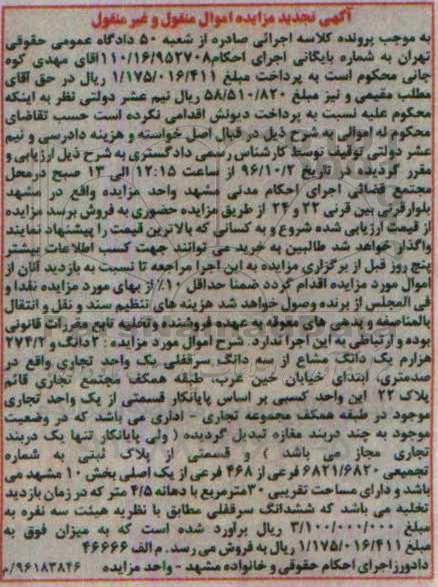 آگهی تجدید مزایده اموال منقول و غیر منقول
به موجب پرونده کلاسه اجرائی صادره از شعبه ۵۰ دادگاه عمومی حقوقی
تهران به شماره بایگانی اجرای احکام ۱۱۰/۱۶/۹۵۲۷۰۸ آقای مهدی کوه
جانی محکوم است به پرداخت مبلغ ۱/۱۷۵/۰۱۶/۴۱۱ ریال در حق آقای
مطلب مقیمی و نیز مبلغ ۵۸/۵۱۰/۸۲۰ ریال نیم عشر دولتی نظر به اینکه
محکوم علیه نسبت به پرداخت دیونش اقدامی نکرده است حسب تقاضای
محکوم له اموالی به شرح ذیل در قبال اصل خواسته و هزینه دادرسی و نیم
عشر دولتی توقیف توسط کارشناس رسمی دادگستری به شرح ذیل ارزیابی و
مقرر گردیده در تاریخ ۹۶/۱۰/۲ از ساعت ۱۲:۱۵ الی ۱۳ صبح درمحل
مجتمع قضائی اجرای احکام مدنی مشهد واحد مزایده واقع در مشهد
بلوارقرنی بین قرنی ۲۲ و ۲۴ از طریق مزایده حضوری به فروش برسد مزایده
از قیمت ارزیابی شده شروع و به کسانی که بالاترین قیمت را پیشنهاد نمایند
واگذار خواهد شد طالبین به خرید می توانند جهت کسب اطلاعات بیشتر
پنج روز قبل از برگزاری مزایده به این اجرا مراجعه تا نسبت به بازدید آنان از
اموال مورد مزایده اقدام گردد ضمنا حداقل ۱۰٪ از بهای مورد مزایده نقدا و
فی المجلس از برنده وصول خواهد شد هزینه های تنظیم سند و نقل و انتقال
بالمناصفه و بدهی های معوقه به عهده فروشنده وتخلیه تابع مقررات قانونی
بوده و ارتباطی به این اجرا ندارد. شرح اموال مورد مزایده : ۲دانگ و ۲۷۴/۲
هزارم یک دانگ مشاع از سه دانگ سرقفلی یک واحد تجاری واقع در
صدمتری، ابتدای خیابان خین عرب، طبقه همکف مجتمع تجاری قائم
پلاک ۲۲ این واحد کسبی بر اساس پایانکار قسمتی از یک واحد تجاری
موجود در طبقه همکف مجموعه تجاری - اداری می باشد که در وضعیت
موجود به چند دربند مغازه تبدیل گردیده ( ولی پایانکار تنها یک دربند
تجاری مجاز می باشد ) و قسمتی از پلاک ثبتی به شماره
تجمیعی ۶۸۲۱/۶۸۲۰ فرعی از ۴۶۸ فرعی از یک اصلی بخش ۱۰ مشهد می
باشد و دارای مساحت تقریبی ۳۰مترمربع با دهانه ۴/۵ متر که در زمان بازدید
تخلیه می باشد که ششدانگ سرقفلی مطابق با نظریه هیئت سه نفره به
مبلغ ۳/۱۰۰/۰۰۰/۰۰۰ ریال برآورد شده است که به میزان فوق به
مبلغ ۱/۱۷۵/۰۱۶/۴۱۱ ریال به فروش می رسد. م الف ۴۶۶۶۶
دادورزاجرای احکام حقوقی و خانواده مشهد - واحد مزایده ۹۶۱۸۳۸۴۶/م